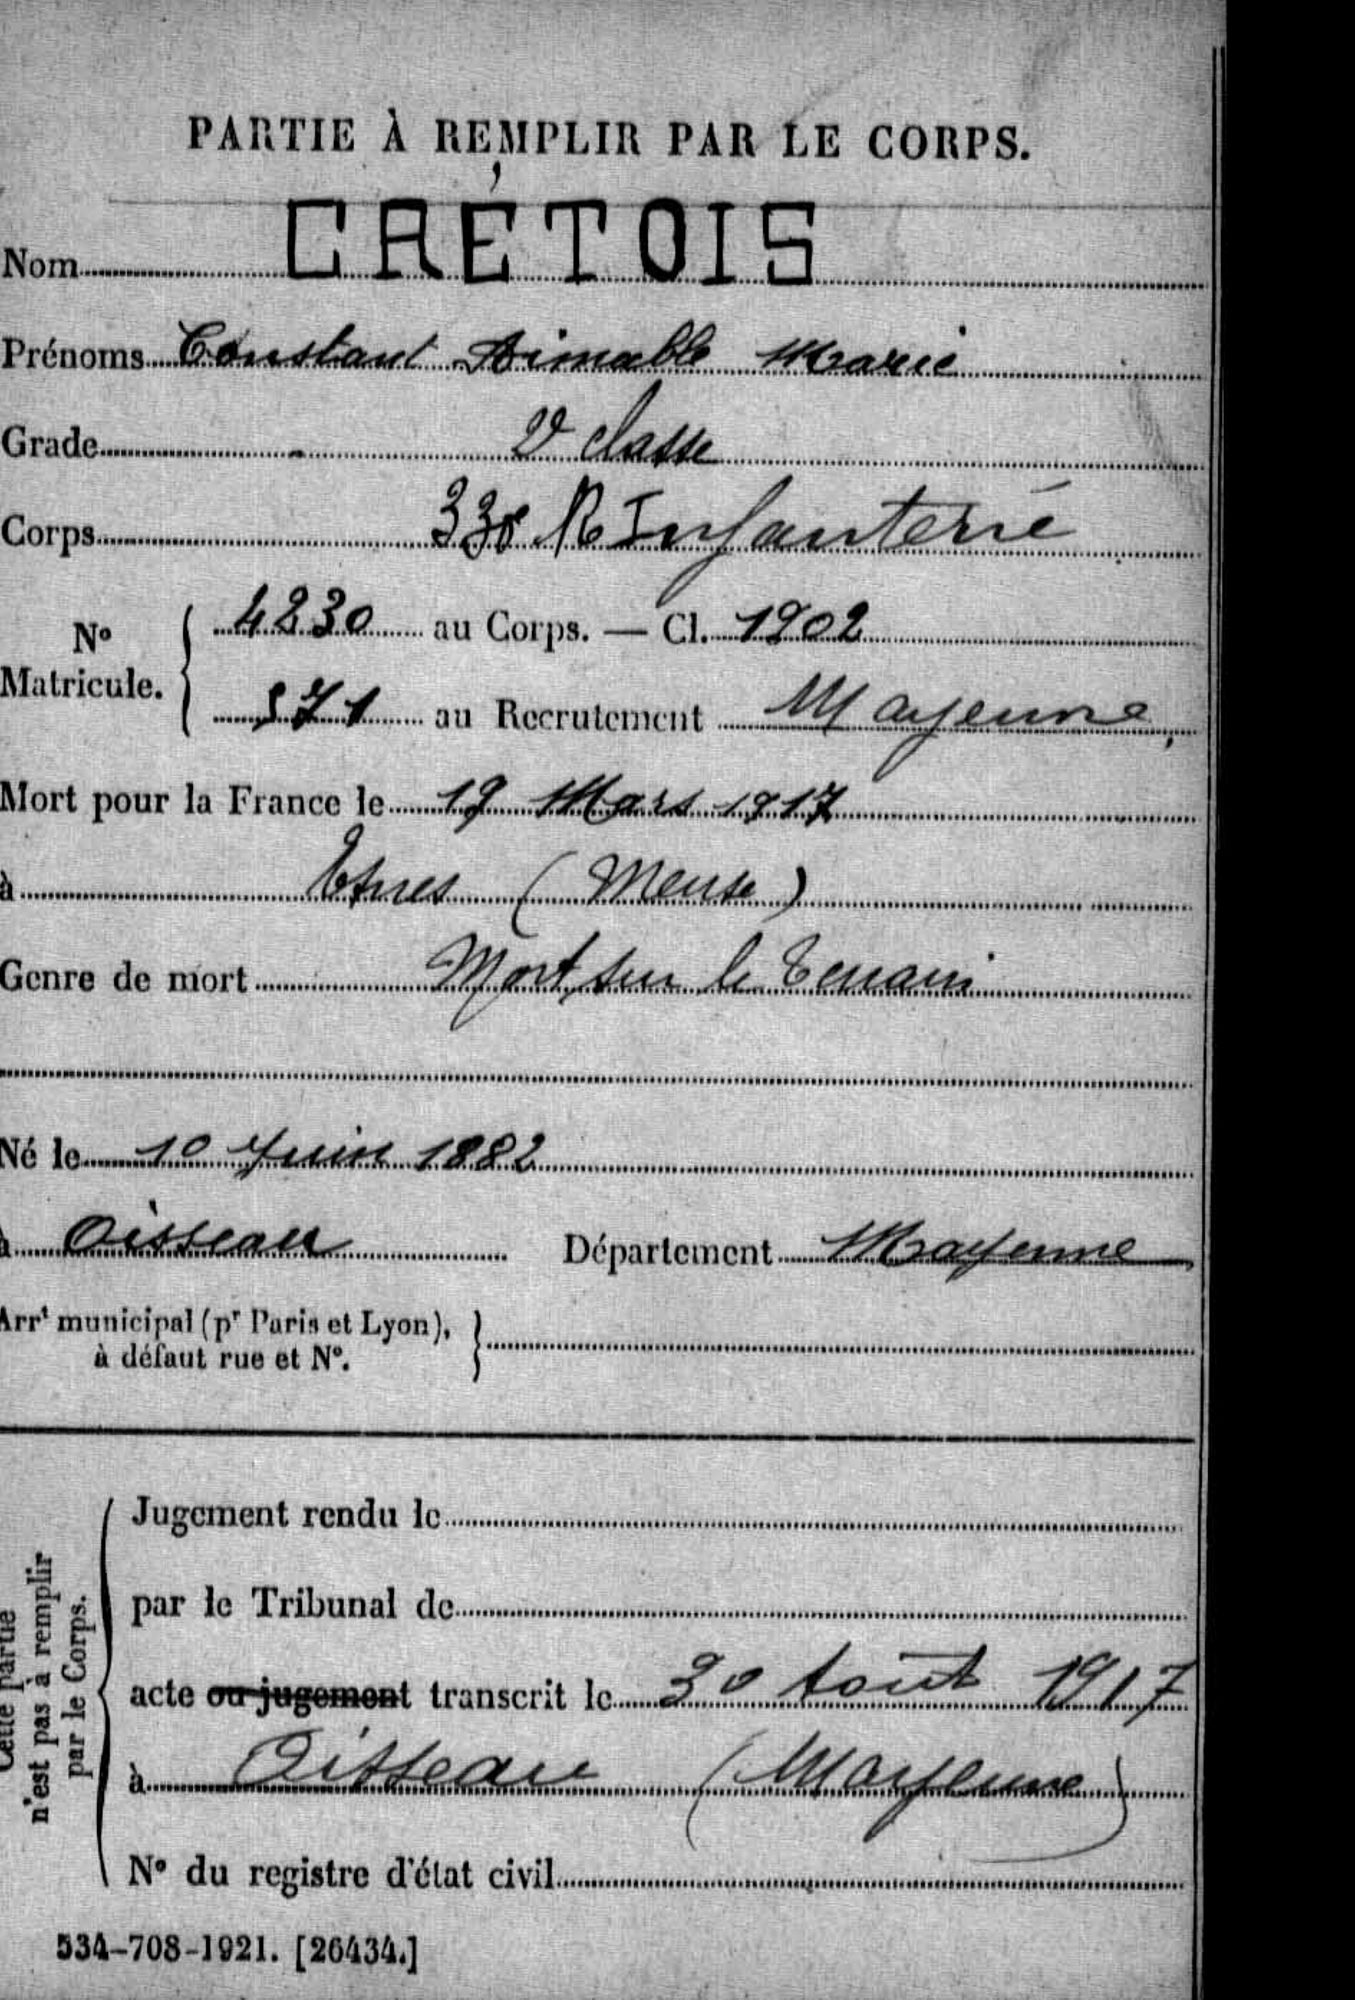 PARTIE À REMPLIR PAR LE CORPS.
Nom CRÉTOIS
Prénoms Constant Aimable Marie
Grade 2e classe
Corps 330e R Infanterie
No Matricule. { 4230 au Corps. — Cl. 1902
571 au Recrutement Mayenne
Mort pour la France le 19 Mars 1917
à (Meuse)
Genre de mort Mort sur le terrain
Né le 10 Juin 1882
à Oisseau Département Mayenne
Arrt municipal (pr Paris et Lyon), }
à défaut rue et No.
Cette partie
n'est pas à remplir
par le Corps.
Jugement rendu le
par le Tribunal de
acte ou jugement transcrit le 30 Août 1917
à Oisseau (Mayenne)
No du registre d'état civil
534-708-1921. [26434.]